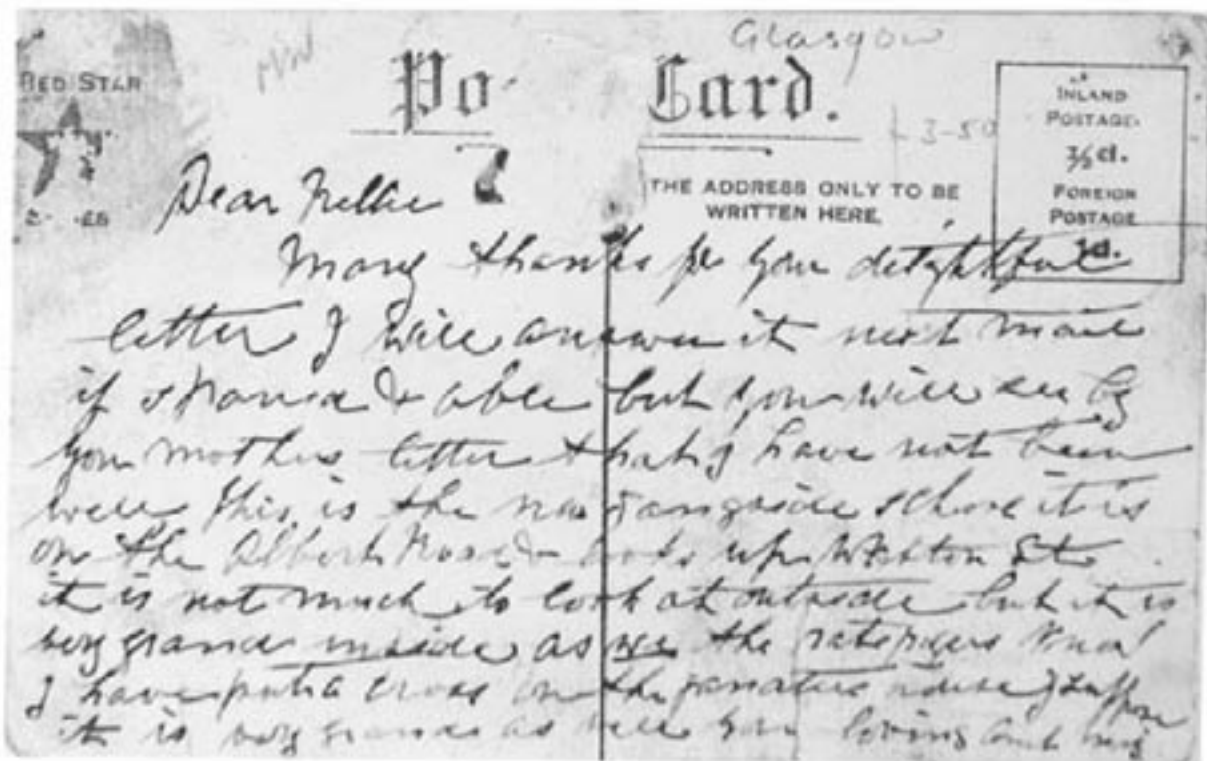 Glasgow
RED STAR
Po Card.
3-50
INLAND
POSTAGE
½d.
FOREIGN
POSTAGE
1d.
THE ADDRESS ONLY TO BE
WRITTEN HERE.
Dear Nellie
Many thanks for your delightful
letter I will answer it next mail
if spared & able but you will see by
your mothers letter that I have not been
well this is the new Langside school it is
on the Albert Road & looks up St
it is not much to look at outside but it is
very grand inside as we the ratepayers know
I have put a cross on the janitors house I suppose
it is very grand as well your loving aunt